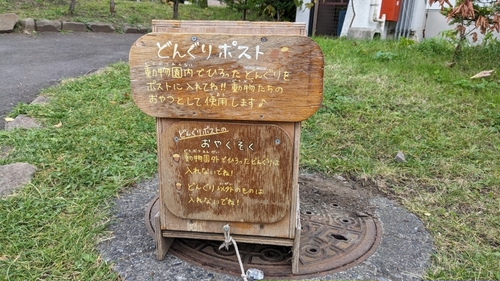 どんぐりポスト
動物園内でひろったどんぐりを
ポストに入れてね!! 動物たちの
おやつとして使用します♪
どんぐりポストの
おやくそく
動物園外でひろったどんぐりは
入れないでね!
どんぐり以外のものは
入れないでね!